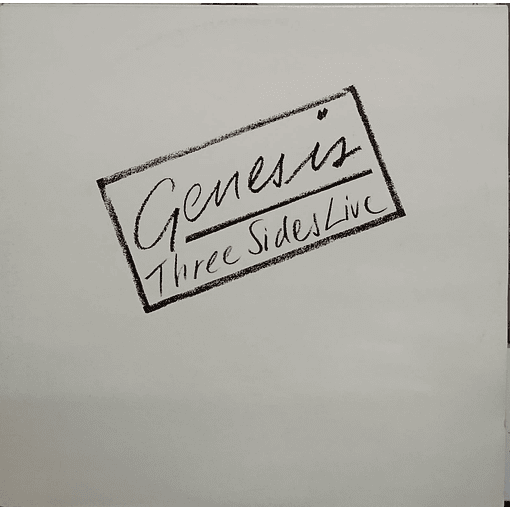 Genesis
Three Sides Live